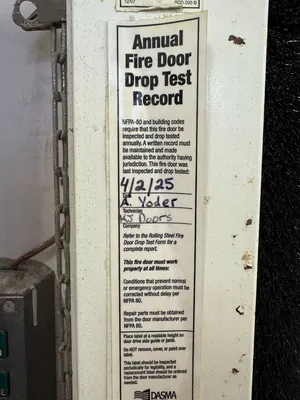 12/07 RDD-200-D
Annual
Fire Door
Drop Test
Record
NFPA-80 and building codes
require that this fire door be
inspected and drop tested
annually. A written record must
be maintained and made
available to the authority having
jurisdiction. This fire door was
last inspected and drop tested:
4/2/25
A. Yoder
Technician
KJ Doors
Company
Refer to the Rolling Steel Fire
Door Drop Test Form for a
complete report.
This fire door must work
properly at all times:
Conditions that prevent normal
or emergency operation must be
corrected without delay per
NFPA 80.
Repair parts must be obtained
from the door manufacturer per
NFPA 80.
Place label at a readable height on
door drive side guide or jamb.
Do NOT remove, cover, or paint over
label.
This label should be inspected
periodically for legibility, and a
replacement label should be ordered
from the door manufacturer as
needed.
DASMA